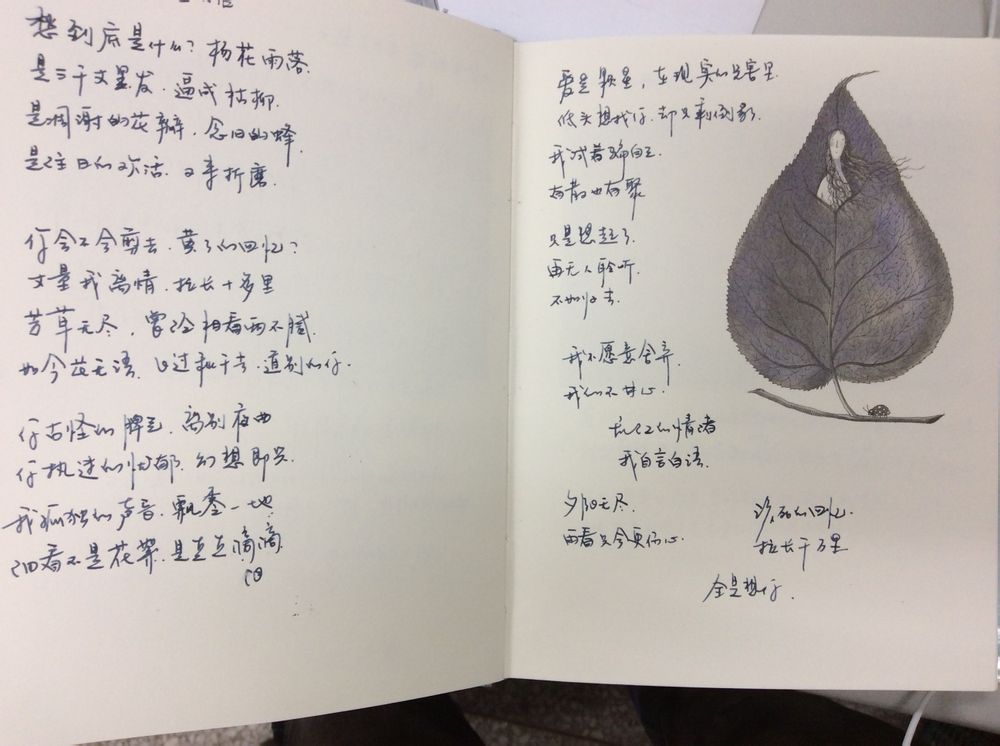 想到底是什么？杨花雨落.
是三千丈墨发，逼成枯柳.
是凋谢的花瓣，念旧的蜂.
是往日的欢活，又来折磨.
你会不会剪去，黄了的回忆？
丈量我离情，拉长十多里
芳草无尽，曾经相看两不腻.
如今花无语，飞过秋千去，道别的你.
你古怪的脾气，离别夜曲
你执迷的忧郁，幻想即兴
我孤独的声音，飘零一地
细看不是花葬，是点点滴滴
泪
爱是颗星，在现实的
低头想找你，却只剩倒影.
我试着骗自己
有散也有聚
只是想起了.
再无人聆听.
不如归去.
我不愿意舍弃.
我们不甘心.
的情绪
我自言自语.
夕阳无尽.
再看只会更伤心.
的回忆.
拉长千万里
全是想你.